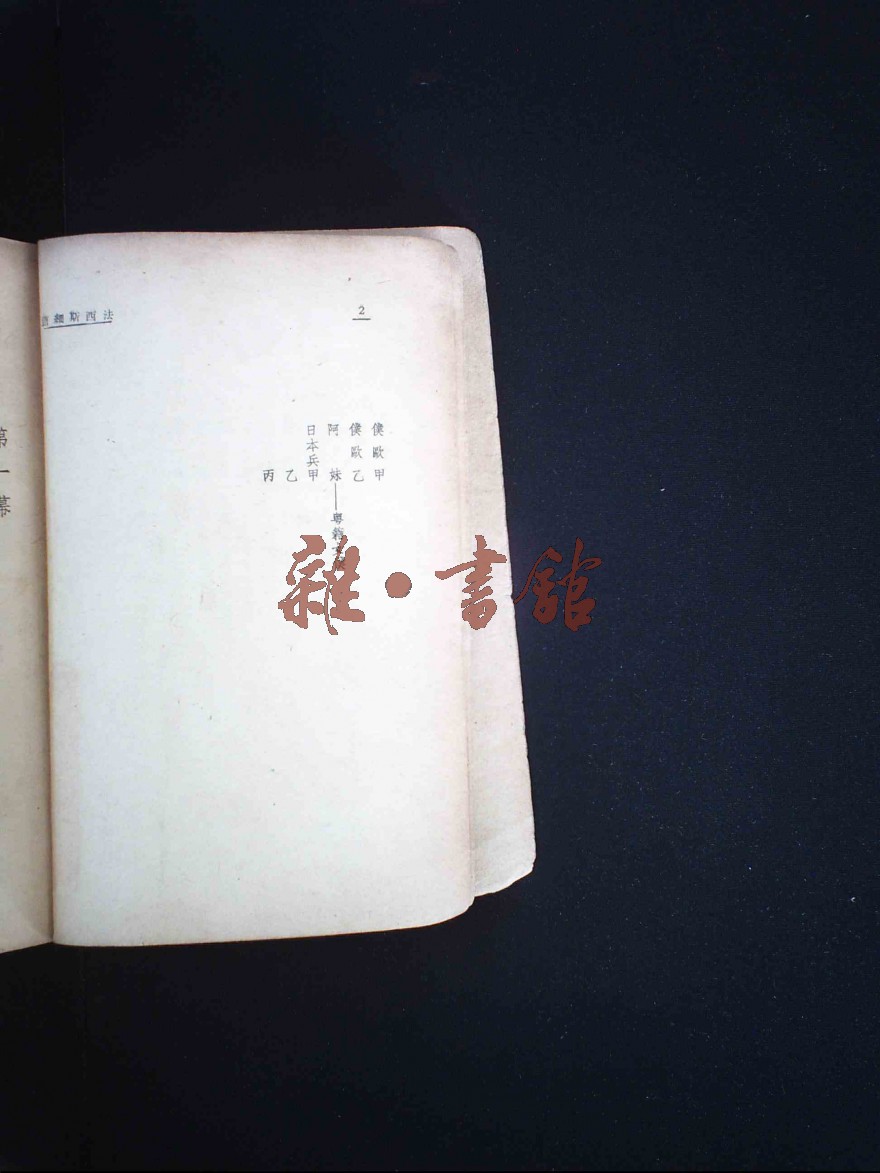 2
法西斯細菌
僕歐甲
僕歐乙
阿妹——粵籍女
日本兵甲
乙
丙
第一幕
雜·書館